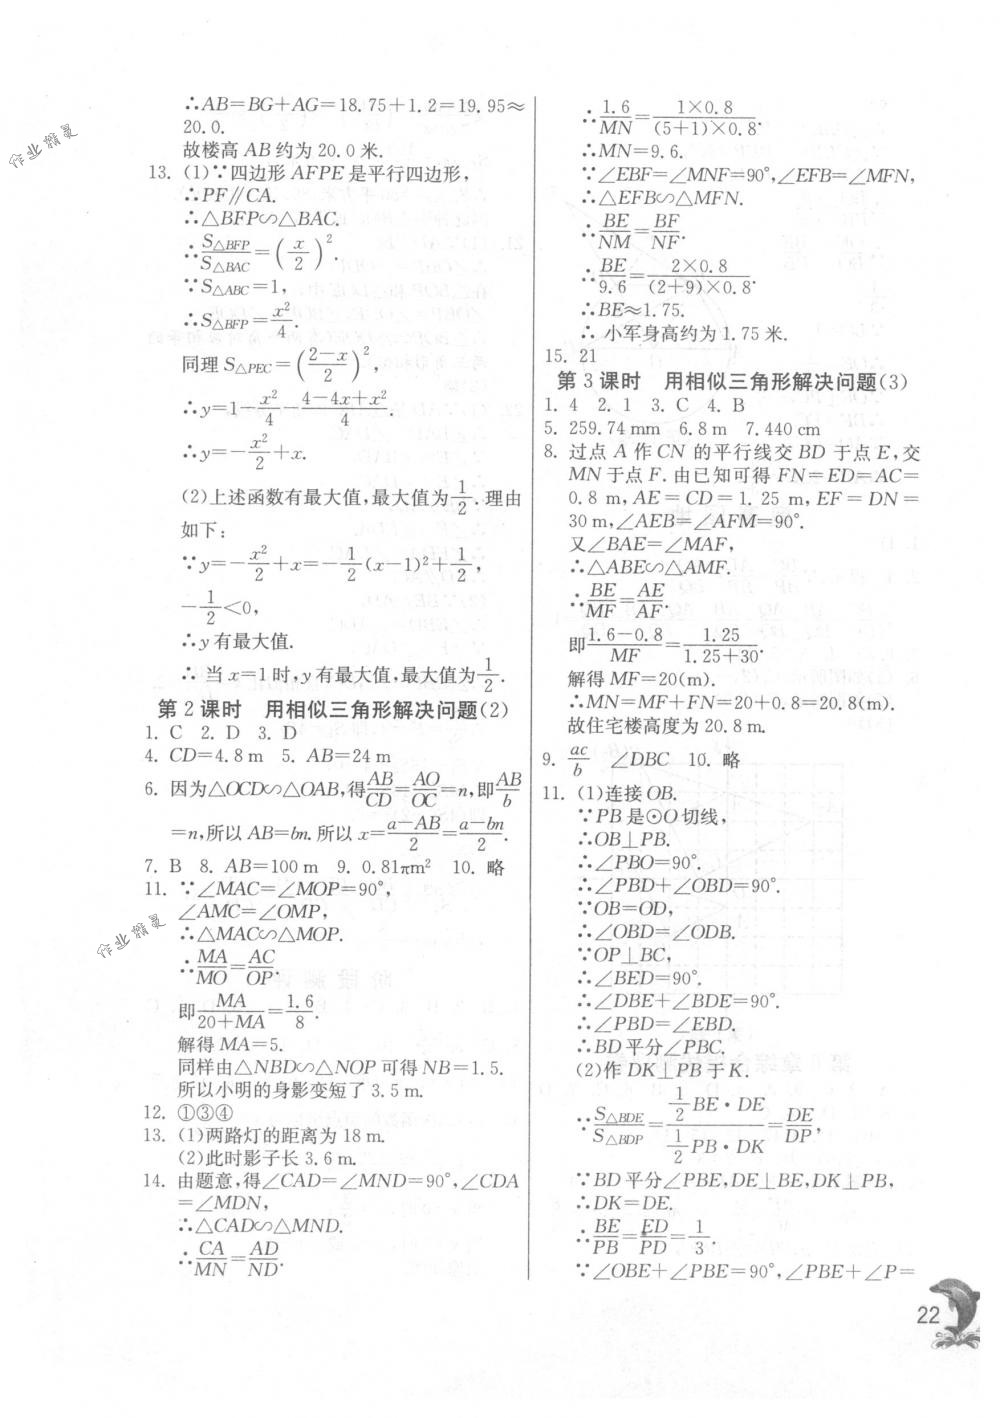 ∴AB=BG+AG=18.75+1.2=19.95≈
20.0.
故楼高 AB 约为 20.0 米.
13. (1)∵四边形 AFPE 是平行四边形,
∴PF∥CA.
∴△BFP∽△BAC.
∴S△BFP/S△BAC=(x/2)².
∵S△ABC=1,
∴S△BFP=x²/4.
同理 S△PEC=((2-x)/2)²,
∴y=1-x²/4-(4-4x+x²)/4.
∴y=-x²/2+x.
(2)上述函数有最大值,最大值为1/2.理由
如下:
∵y=-x²/2+x=-1/2(x-1)²+1/2,
-1/2<0,
∴y 有最大值.
∴当 x=1 时,y 有最大值,最大值为1/2.
第 2 课时　用相似三角形解决问题(2)
1. C　2. D　3. D
4. CD=4.8 m　5. AB=24 m
6. 因为△OCD∽△OAB,得AB/CD=AO/OC=n,即AB/b
=n,所以 AB=bn.所以 x=(a-AB)/2=(a-bn)/2.
7. B　8. AB=100 m　9. 0.81πm²　10. 略
11. ∵∠MAC=∠MOP=90°,
∠AMC=∠OMP,
∴△MAC∽△MOP.
∴MA/MO=AC/OP.
即MA/(20+MA)=1.6/8.
解得 MA=5.
同样由△NBD∽△NOP 可得 NB=1.5.
所以小明的身影变短了 3.5 m.
12. ①③④
13. (1)两路灯的距离为 18 m.
(2)此时影子长 3.6 m.
14. 由题意,得∠CAD=∠MND=90°,∠CDA
=∠MDN,
∴△CAD∽△MND.
∴CA/MN=AD/ND.
∴1.6/MN=(1×0.8)/((5+1)×0.8).
∴MN=9.6.
∵∠EBF=∠MNF=90°,∠EFB=∠MFN,
∴△EFB∽△MFN.
∴BE/NM=BF/NF.
∴BE/9.6=(2×0.8)/((2+9)×0.8).
∴BE≈1.75.
∴小军身高约为 1.75 米.
15. 21
第 3 课时　用相似三角形解决问题(3)
1. 4　2. 1　3. C　4. B
5. 259.74 mm　6. 8 m　7. 440 cm
8. 过点 A 作 CN 的平行线交 BD 于点 E,交
MN 于点 F.由已知可得 FN=ED=AC=
0.8 m,AE=CD=1.25 m,EF=DN=
30 m,∠AEB=∠AFM=90°.
又∠BAE=∠MAF,
∴△ABE∽△AMF.
∴BE/MF=AE/AF.
即(1.6-0.8)/MF=1.25/(1.25+30).
解得 MF=20(m).
∴MN=MF+FN=20+0.8=20.8(m).
故住宅楼高度为 20.8 m.
9. ac/b　∠DBC　10. 略
11. (1)连接OB.
∵PB 是⊙O切线,
∴OB⊥PB.
∴∠PBO=90°.
∴∠PBD+∠OBD=90°.
∵OB=OD,
∴∠OBD=∠ODB.
∵OP⊥BC,
∴∠BED=90°.
∴∠DBE+∠BDE=90°.
∴∠PBD=∠EBD.
∴BD 平分∠PBC.
(2)作 DK⊥PB 于 K.
∵S△BDE/S△BDP=(1/2 BE·DE)/(1/2 PB·DK)=DE/DP,
∵BD 平分∠PBE,DE⊥BE,DK⊥PB,
∴DK=DE.
∴BE/PB=ED/PD=1/3.
∵∠OBE+∠PBE=90°,∠PBE+∠P=
22
作业精灵
作业精灵